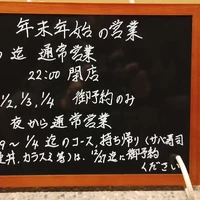 年末年始の営業
迄 通常営業
22:00 閉店
1/2, 1/3, 1/4 御予約のみ
夜から通常営業
9～1/4 迄のコース、持ち帰り(サバ寿司
丼、カラスミ等)は、12/27迄に御予約
ください